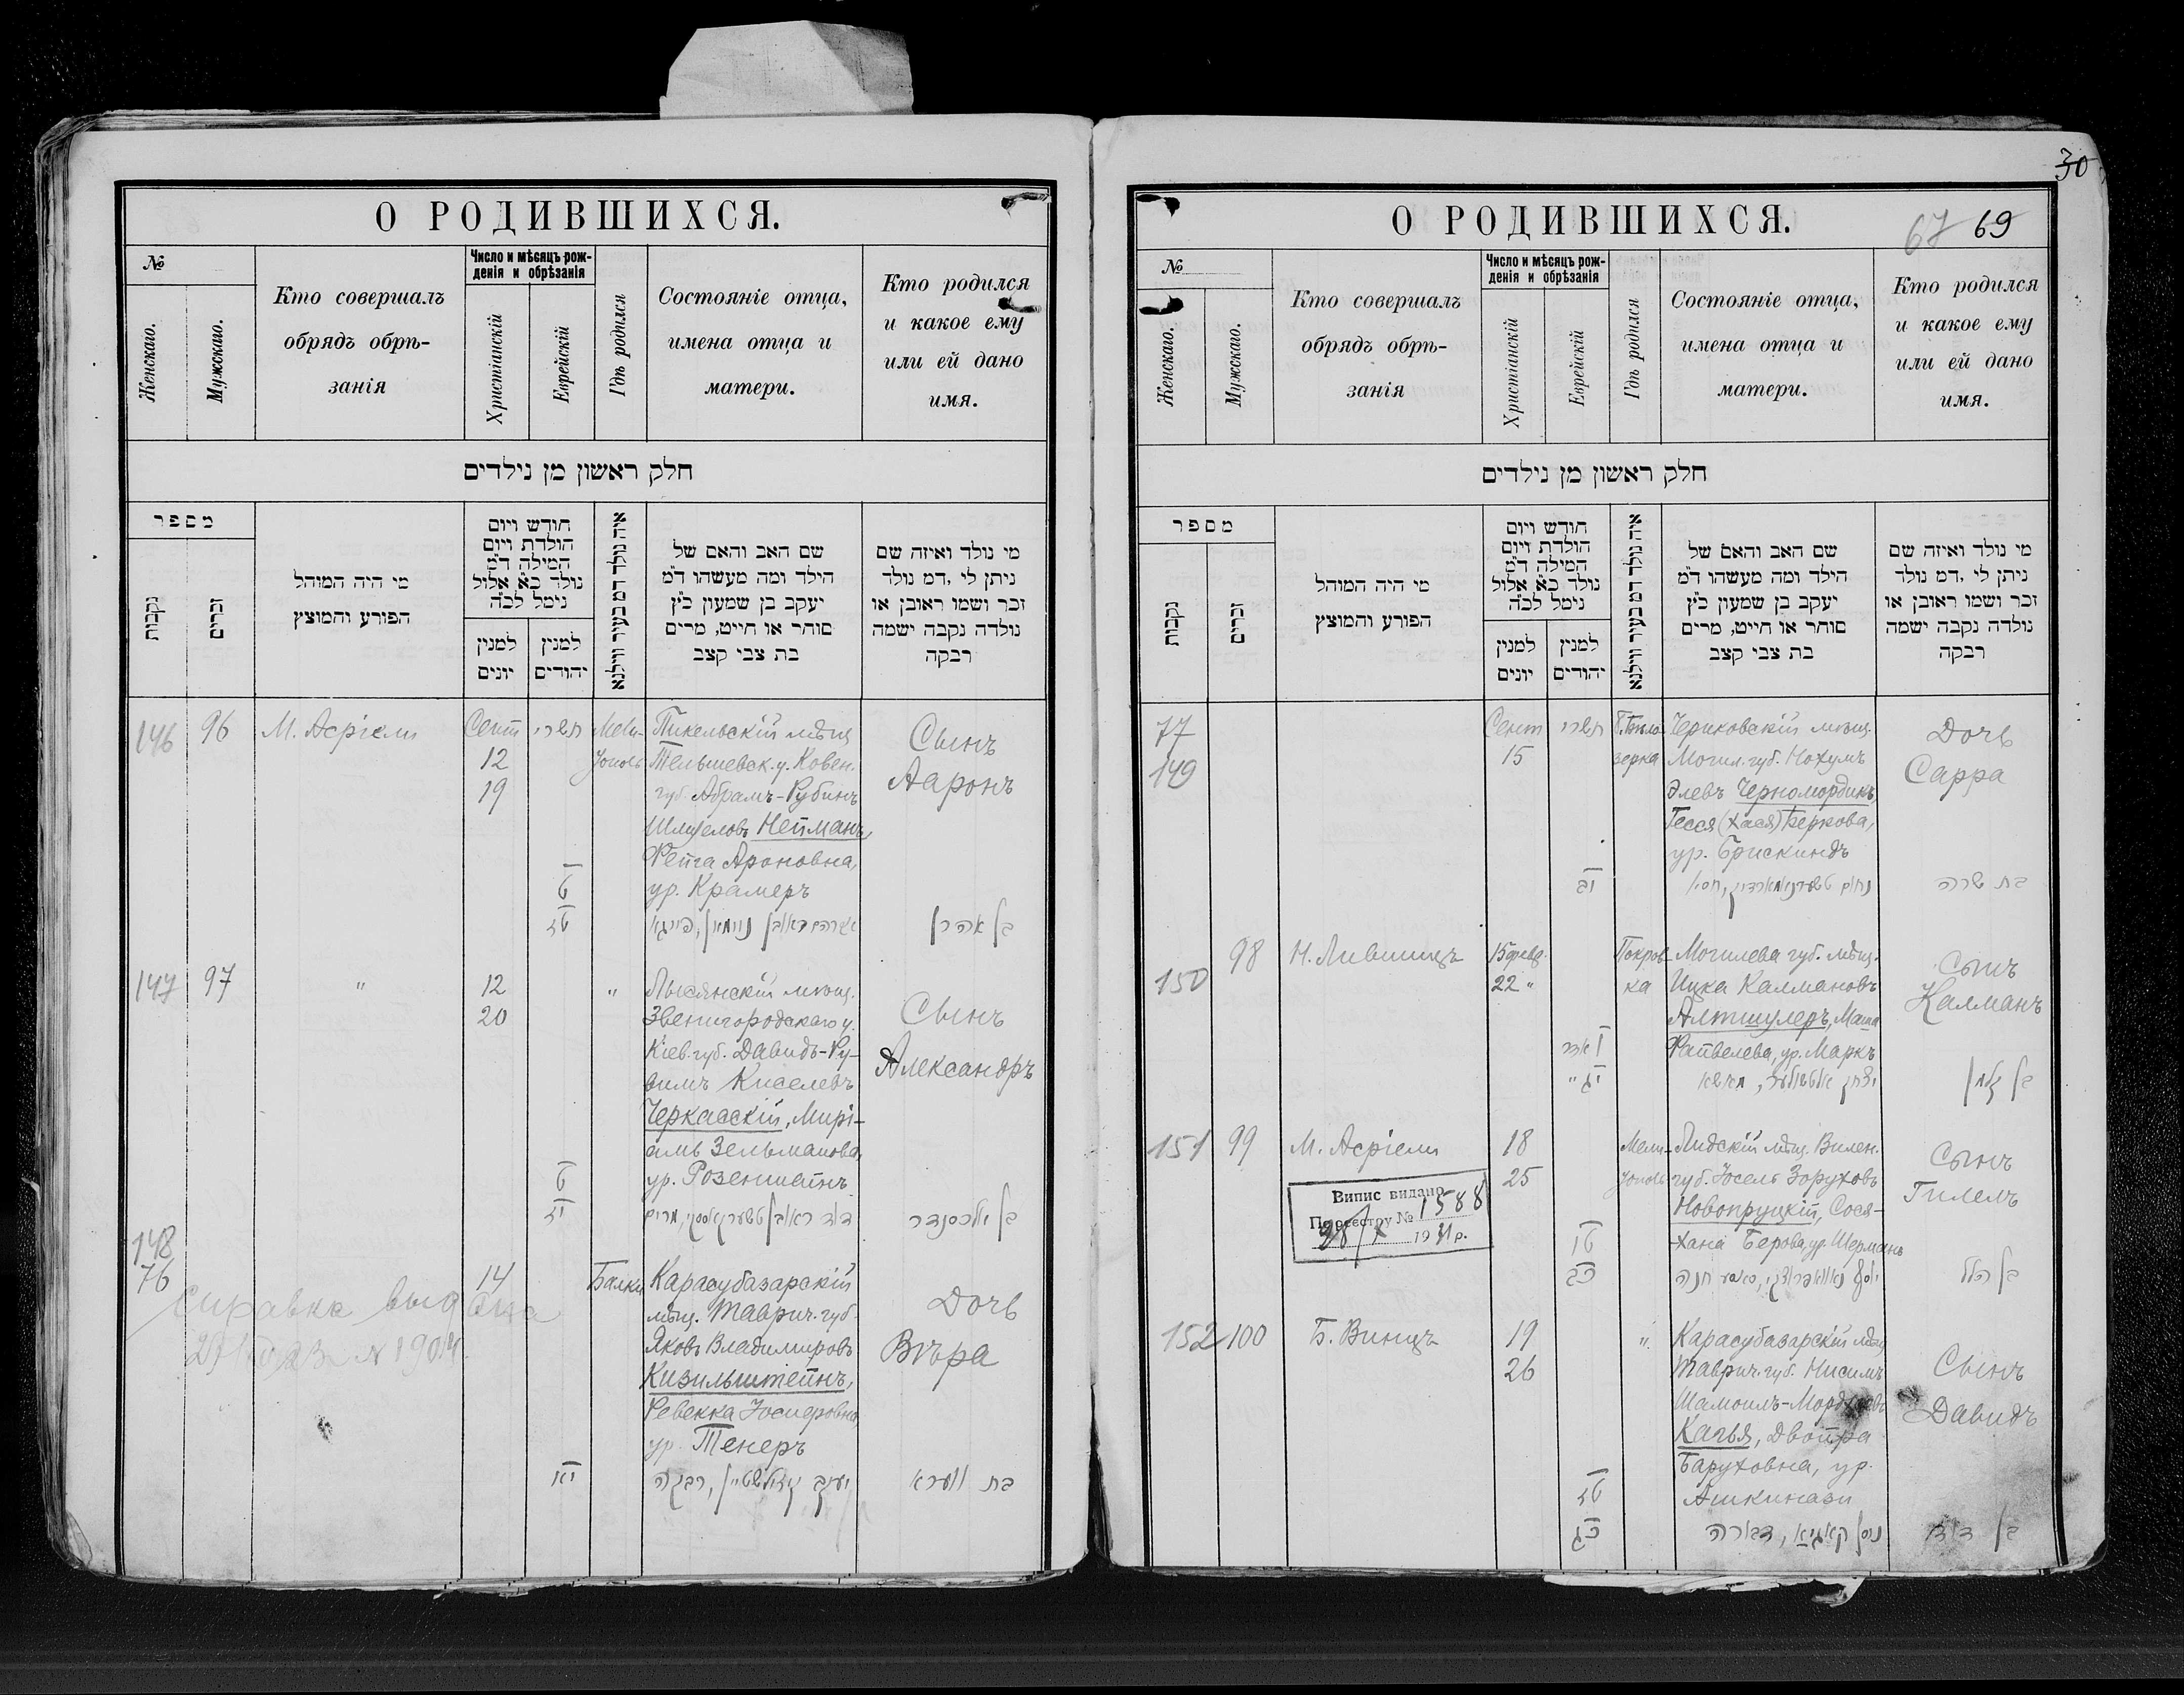 О РОДИВШИХСЯ.
№
Женскаго.
Мужскаго.
Кто совершалъ
обрядъ обрѣ-
занія
Число и мѣсяцъ рож-
денія и обрѣзанія
Христіанскій
Еврейскій
Гдѣ родился
Состояніе отца,
имена отца и
матери.
Кто родился
и какое ему
или ей дано
имя.
חלק ראשון מן נילדים
מספר
נקבות
זכרים
מי היה המוהל
הפורע והמוצץ
חודש ויום
הולדת ויום
המילה ד"מ
נולד כ"א אלול
נימל לכ"ה
למנין
יונים
למנין
יהודים
איה נולד דמ בעיר ווילנא
שם האב והאם של
הילד ומה מעשהו ד"מ
יעקב בן שמעון כ"ץ
סוחר או חייט, מרים
בת צבי קצב
מי נולד ואיזה שם
ניתן לי, דמ נולד
זכר ושמו ראובן או
נולדה נקבה ישמה
רבקה
146
96
М. Асріели
Сент
12
19
תשרי
ט
טז
Мели-
тополь
Пикельскій мѣщ.
Тельшевск. у. Ковен.
губ. Абрамъ-Рубинъ
Шмуеловъ Нейманъ,
Фейга Ароновна,
ур. Крамеръ
אברהם ראובן נוימאן, פייגא
Сынъ
Ааронъ
בן אהרן
147
97
"
12
20
ט
יז
"
Лысянскій мѣщ.
Звенигородскаго у.
Кіев. губ. Давидъ-Ру-
вимъ Киселевъ
Черкасскій, Мирі-
амъ Зельманова,
ур. Розенштейнъ
דוד ראובן טשערקאסקי, מרים
Сынъ
Александръ
בן אלכסנדר
148
76
Справка выдана
14
יא
Балки
Карасубазарскій
мѣщ. Таврич. губ.
Яковъ Владимировъ
Кизильштейнъ,
Ревекка
ур. Тенеръ
יעקב קיזילשטיין, רבקה
Дочь
Вѣра
בת ווערא
30
О РОДИВШИХСЯ.
67 69
№
Женскаго.
Мужскаго.
Кто совершалъ
обрядъ обрѣ-
занія
Число и мѣсяцъ рож-
денія и обрѣзанія
Христіанскій
Еврейскій
Гдѣ родился
Состояніе отца,
имена отца и
матери.
Кто родился
и какое ему
или ей дано
имя.
חלק ראשון מן נילדים
מספר
נקבות
זכרים
מי היה המוהל
הפורע והמוצץ
חודש ויום
הולדת ויום
המילה ד"מ
נולד כ"א אלול
נימל לכ"ה
למנין
יונים
למנין
יהודים
איה נולד דמ בעיר ווילנא
שם האב והאם של
הילד ומה מעשהו ד"מ
יעקב בן שמעון כ"ץ
סוחר או חייט, מרים
בת צבי קצב
מי נולד ואיזה שם
ניתן לי, דמ נולד
זכר ושמו ראובן או
נולדה נקבה ישמה
רבקה
77
149
Сент
15
תשרי
יב
Б. Бѣло-
зерка
Чериковскій мѣщ.
Могил. губ. Нохумъ
Элевъ Черномордикъ,
Гесся (Хася) Беркова,
ур. Брискиндъ
Дочь
Сарра
בת שרה
150
98
Н. Лившицъ
15 февр.
22 "
ו אדר
יג "
Покров-
ка
Могилева губ. мѣщ.
Ицка Калмановъ
Алтшулеръ, Маша
Файвелева, ур. Маркъ
יצחק אלטשולער, מאשא
Сынъ
Калманъ
בן קלמן
151
99
М. Асріели
18
25
טו
כב
Мели-
тополь
Лидскій мѣщ. Вилен.
губ. Іосель Зоруховъ
Новопруцкій, Сося-
Хана Берова, ур. Шерманъ
Сынъ
Гилель
בן הלל
Випис видано
По реєстру № 1588
28/X 1931 р.
152
100
Б. Винцъ
19
26
טז
כג
"
Карасубазарскій мѣщ.
Таврич. губ. Нисимъ
Шамоилъ-Мордхаевъ
Кагья, Двойра
Баруховна, ур.
Ашкинази
ניסן קאגיא, דבורה
Сынъ
Давидъ
בן דוד